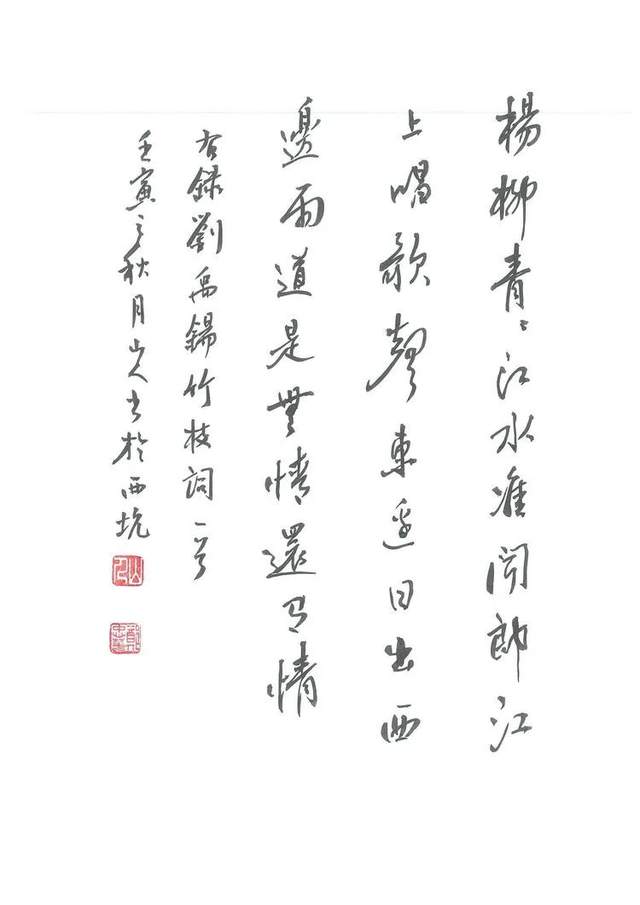 楊柳青〻江水准闻郎江
上唱歌聲東边日出西
邊雨道是無情還有情
右録劉禹錫竹枝詞一首
壬寅之秋月山人书於西坑
山人